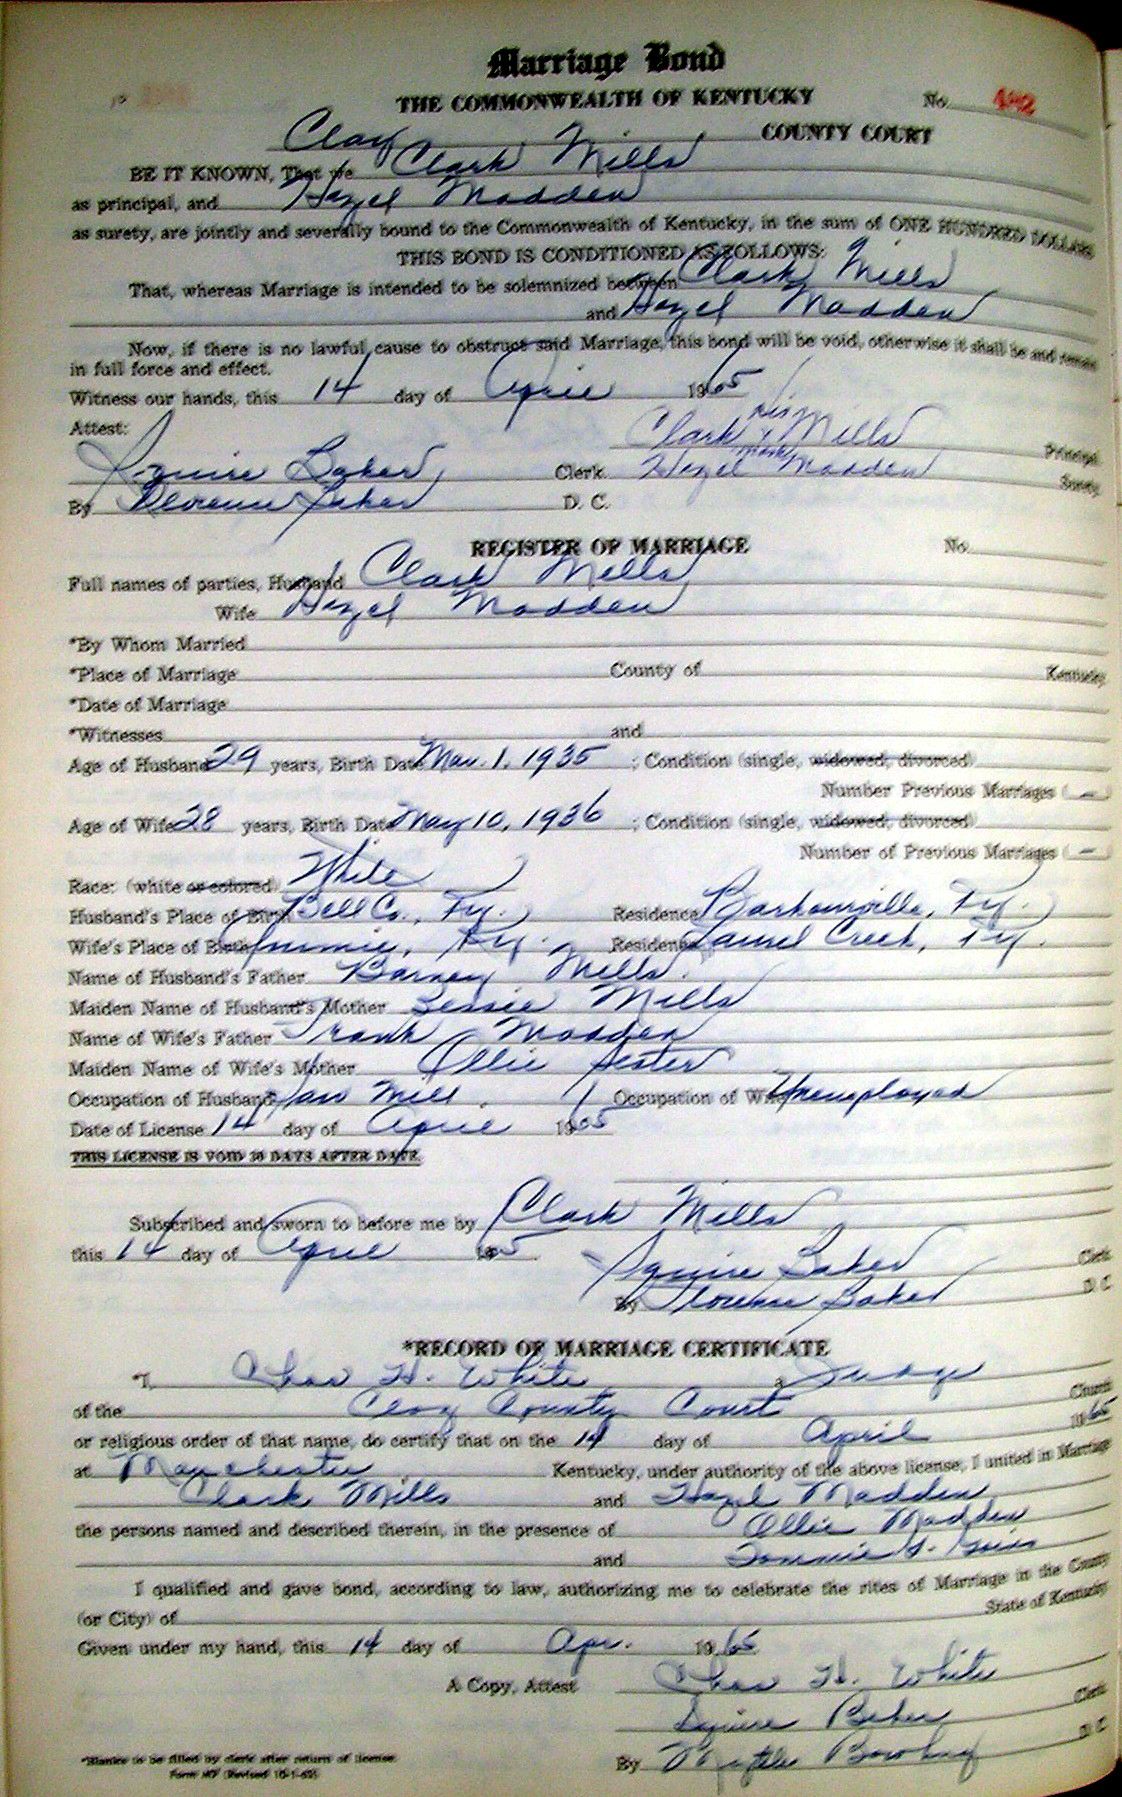 Marriage Bond
THE COMMONWEALTH OF KENTUCKY No. 492
Clay COUNTY COURT
BE IT KNOWN, That we Clark Mills
as principal, and Hazel Madden
as surety, are jointly and severally bound to the Commonwealth of Kentucky, in the sum of ONE HUNDRED DOLLARS
THIS BOND IS CONDITIONED AS FOLLOWS:
That, whereas Marriage is intended to be solemnized between Clark Mills
and Hazel Madden
Now, if there is no lawful cause to obstruct said Marriage, this bond will be void, otherwise it shall be and remain
in full force and effect.
Witness our hands, this 14 day of April 1965
Attest: Clark his x mark Mills Principal
Squire Baker Clerk Hazel Madden Surety
By Florence Baker D. C.
REGISTER OF MARRIAGE No.
Full names of parties, Husband Clark Mills
Wife Hazel Madden
*By Whom Married
*Place of Marriage County of Kentucky
*Date of Marriage
*Witnesses and
Age of Husband 29 years, Birth Date Mar. 1, 1935 ; Condition (single, widowed, divorced)
Number Previous Marriages ( - )
Age of Wife 28 years, Birth Date May 10, 1936 ; Condition (single, widowed, divorced)
Number of Previous Marriages ( - )
Race: (white or colored) White
Husband's Place of Birth Bell Co., Ky. Residence Barbourville, Ky.
Wife's Place of Birth Ky. Residence Laurel Creek, Ky.
Name of Husband's Father Barney Mills
Maiden Name of Husband's Mother Bessie Mills
Name of Wife's Father Frank Madden
Maiden Name of Wife's Mother Ollie Hester
Occupation of Husband Saw Mill Occupation of Wife Unemployed
Date of License 14 day of April 1965
THIS LICENSE IS VOID 30 DAYS AFTER DATE
Subscribed and sworn to before me by Clark Mills
this 14 day of April 1965
Squire Baker Clerk
By Florence Baker D. C.
*RECORD OF MARRIAGE CERTIFICATE
*I, Chas H. White a Judge
of the Clay County Court Church
or religious order of that name, do certify that on the 14 day of April 1965
at Manchester Kentucky, under authority of the above license, I united in Marriage
Clark Mills and Hazel Madden
the persons named and described therein, in the presence of Ollie Madden
and
I qualified and gave bond, according to law, authorizing me to celebrate the rites of Marriage in the County
(or City) of State of Kentucky
Given under my hand, this 14 day of Apr. 1965
A Copy, Attest Chas H. White
Squire Baker Clerk
*Blanks to be filled by clerk after return of license By Myrtle Bowling D. C.